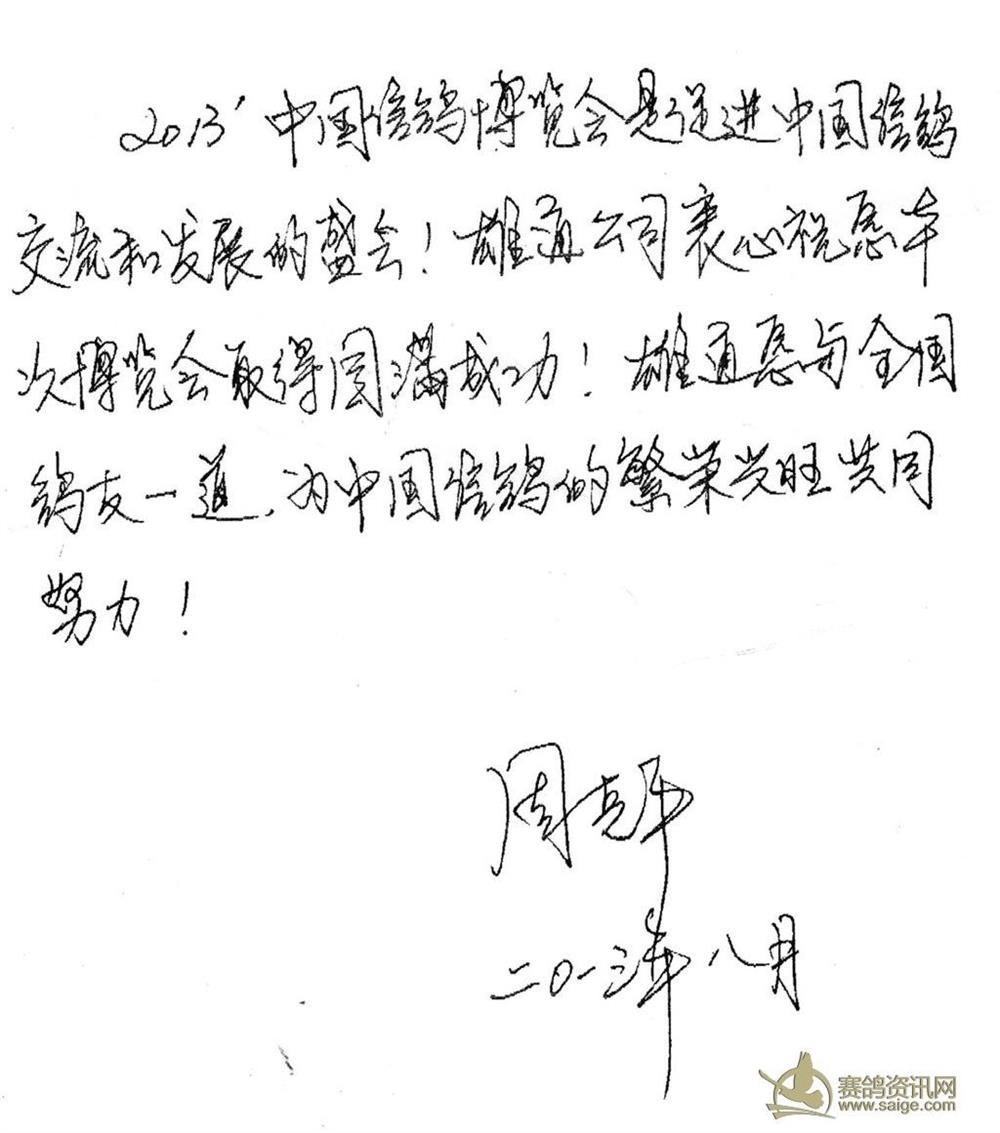 2013'中国信鸽博览会是促进中国信鸽
交流和发展的盛会！雄通公司衷心祝愿本
次博览会取得圆满成功！雄通愿与全国
鸽友一道，为中国信鸽的繁荣兴旺共同
努力！
周亮军
二〇一三年八月
赛鸽资讯网
www.saige.com